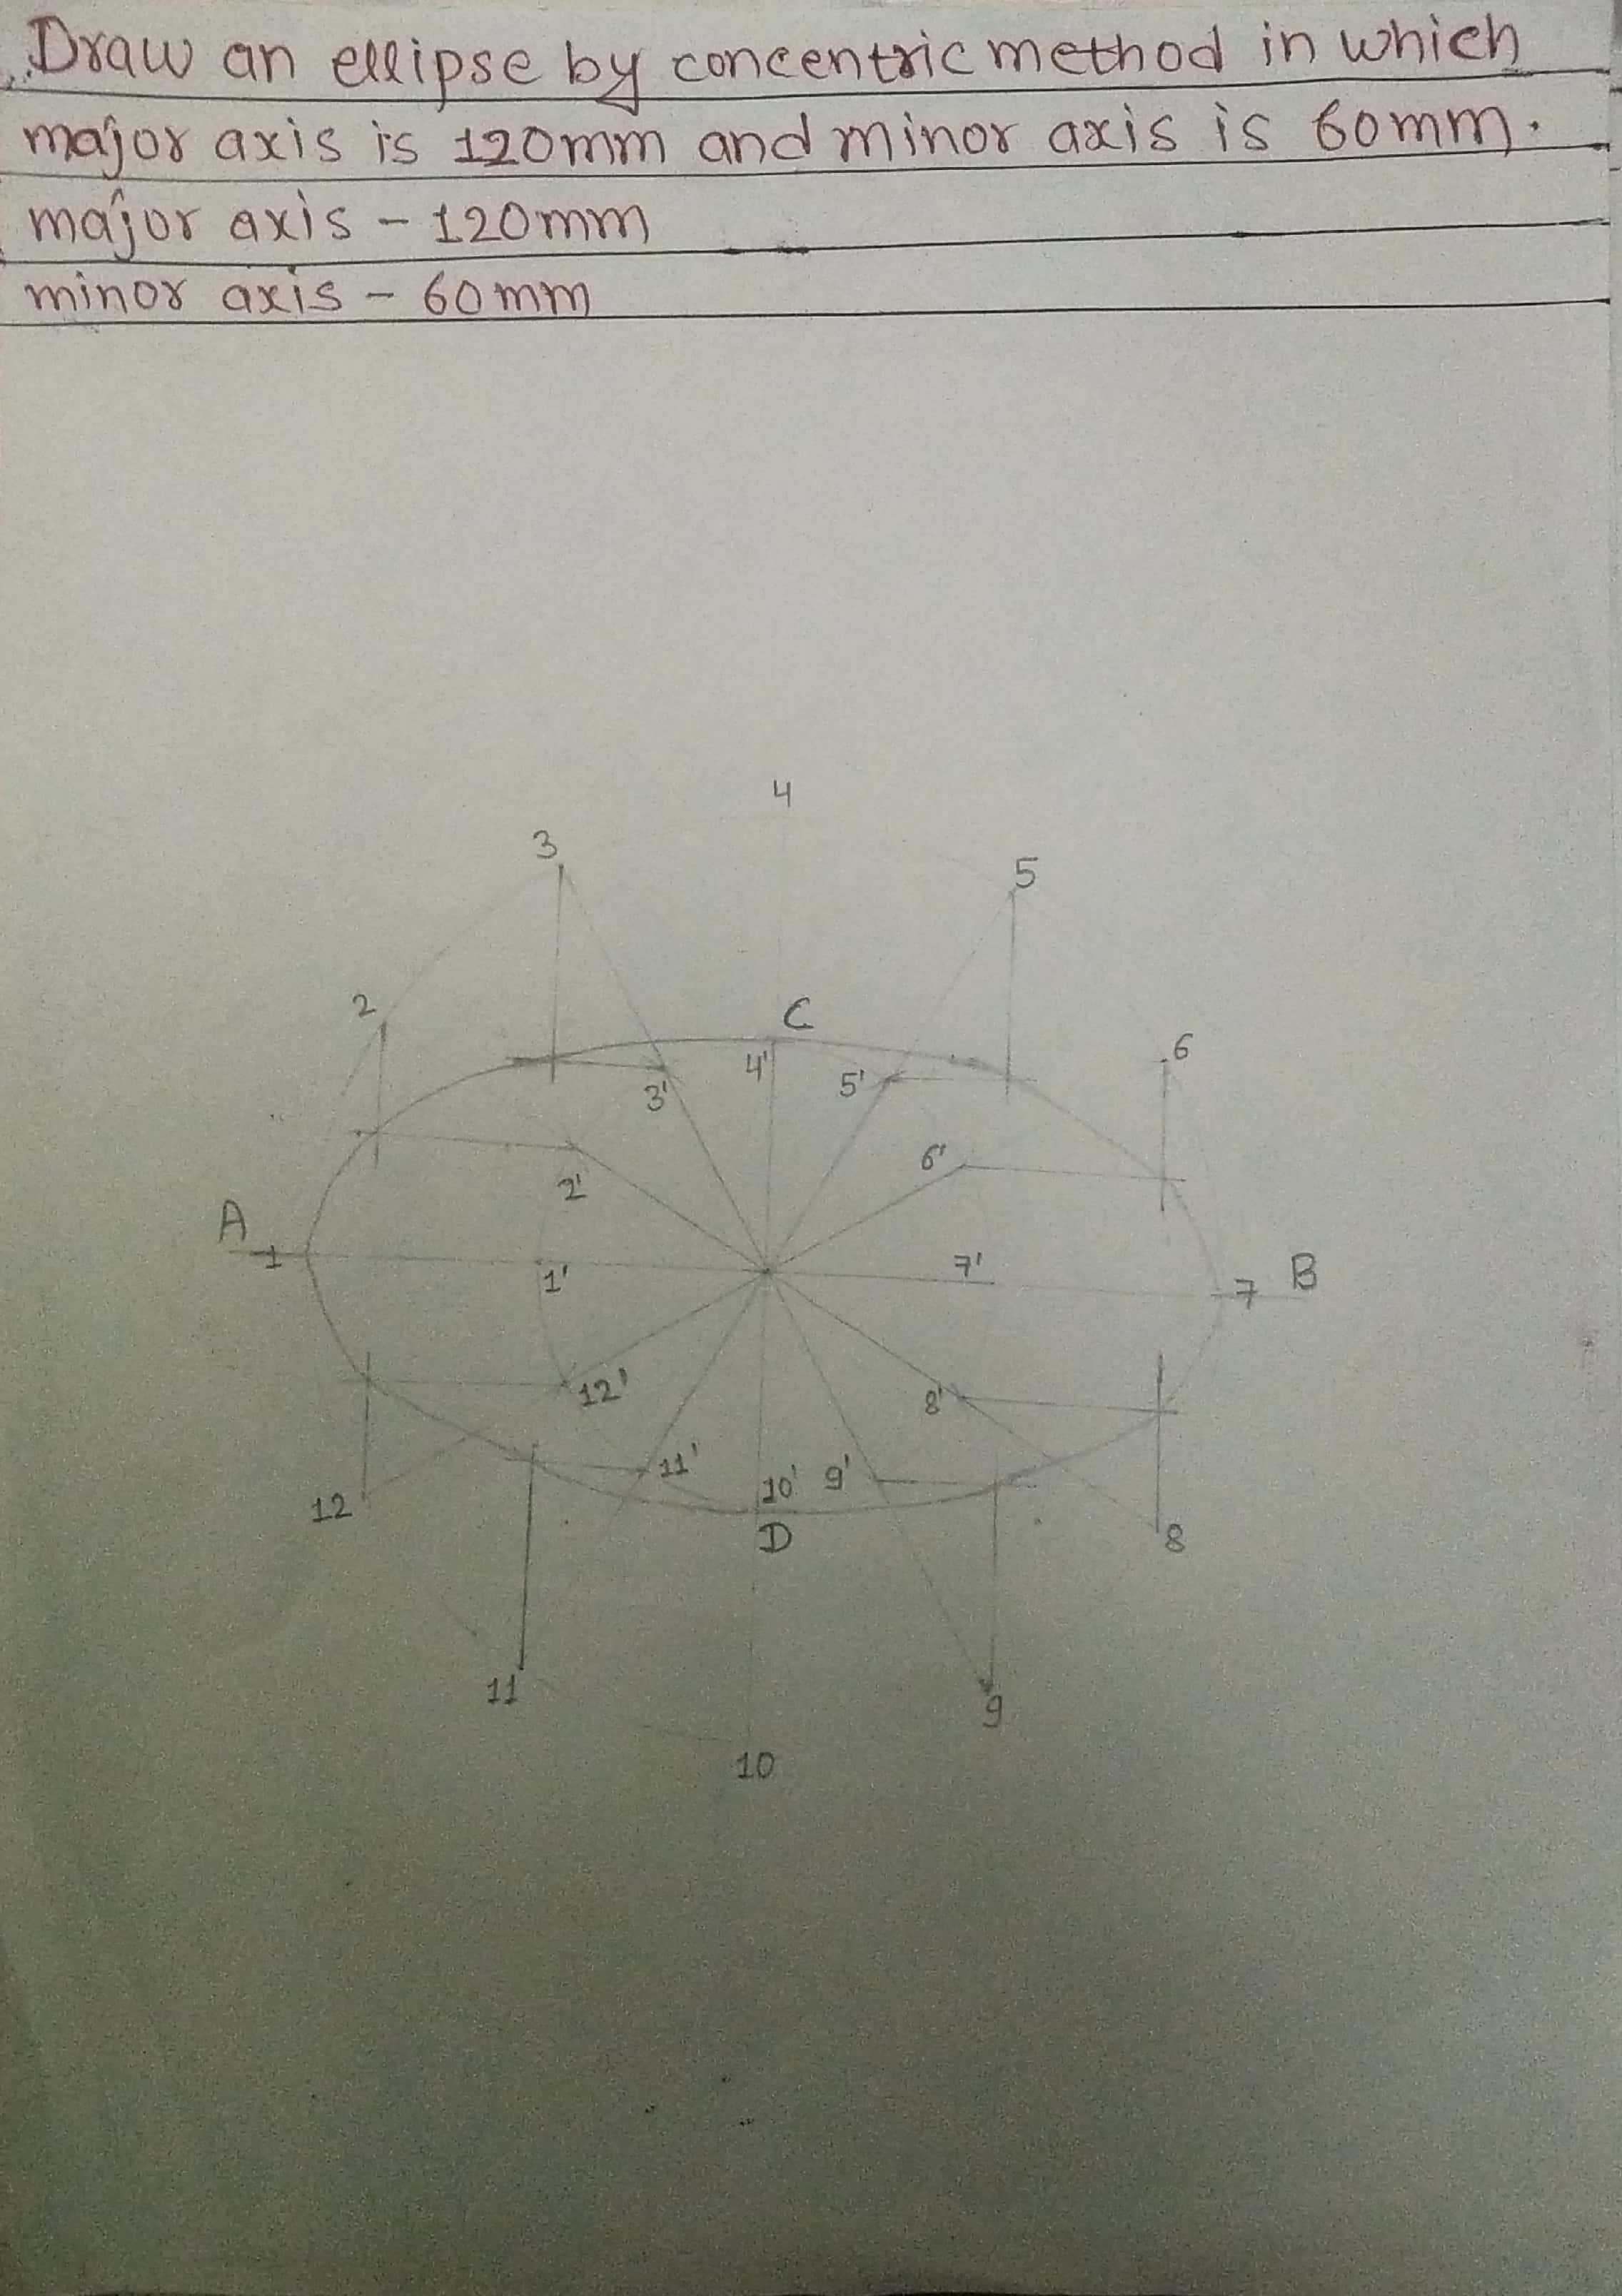 Draw an ellipse by concentric method in which
major axis is 120mm and minor axis is 60mm.
major axis - 120mm
minor axis - 60mm
4
3
5
2
C
6
4'
3'
5'
6'
2'
A
1
1'
7'
7
B
12'
8'
11'
10'
9'
12
D
8
11
9
10